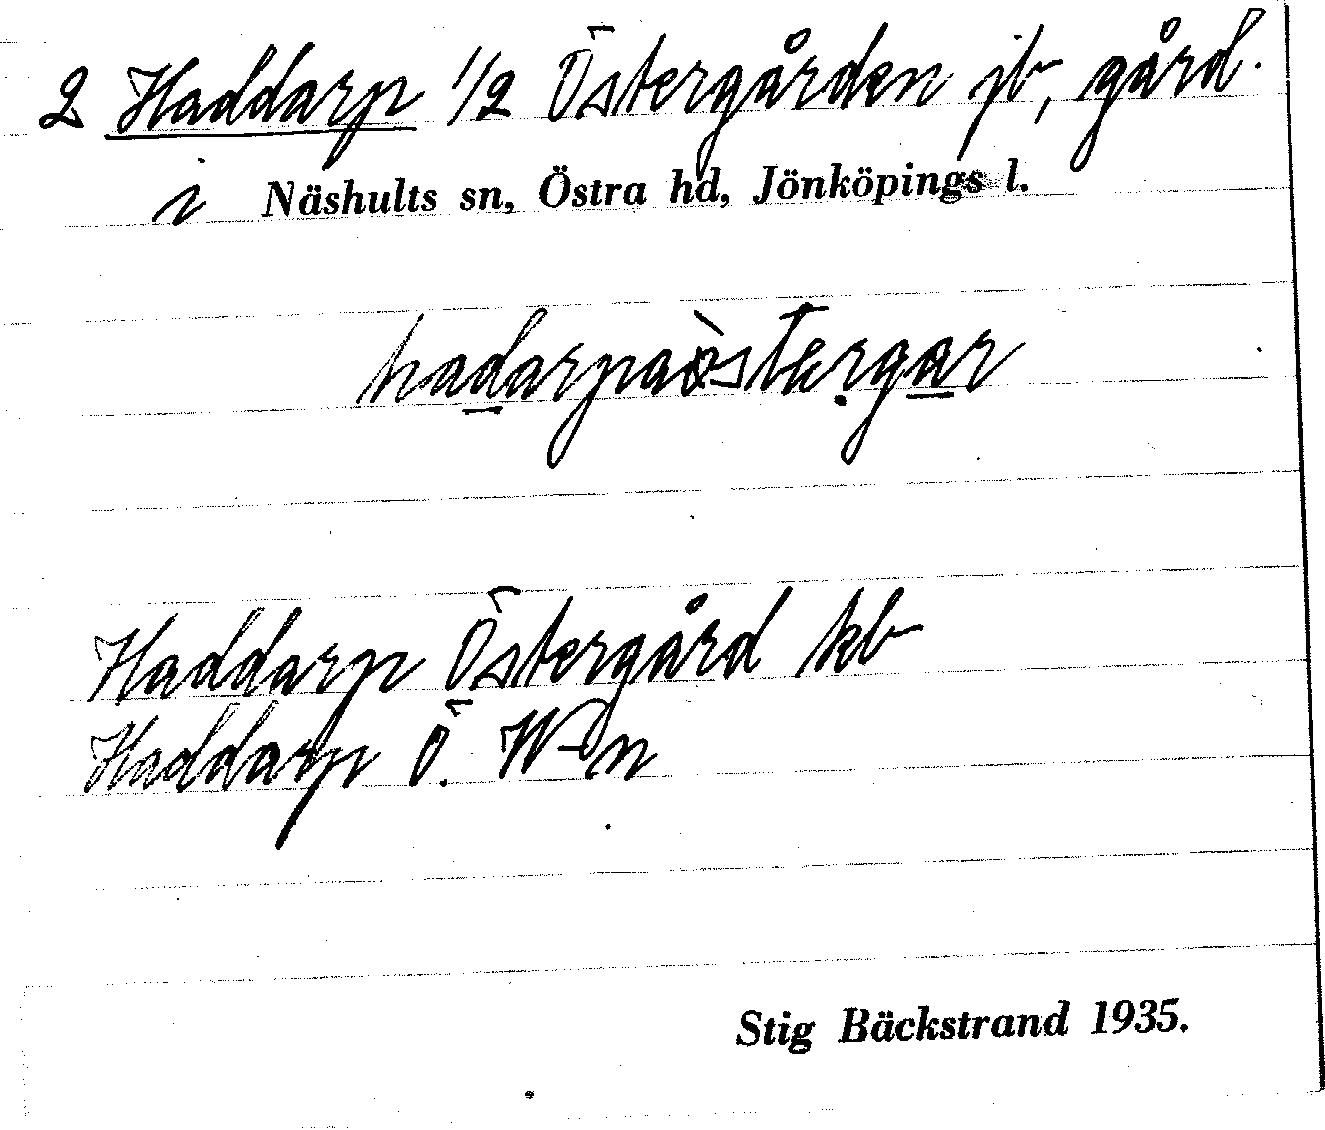 2 Haddarp 1/2 Östergården jb, gård.
i Näshults sn, Östra hd, Jönköpings l.
Haddarp Östergård kb
Haddarp Ö.
Stig Bäckstrand 1935.